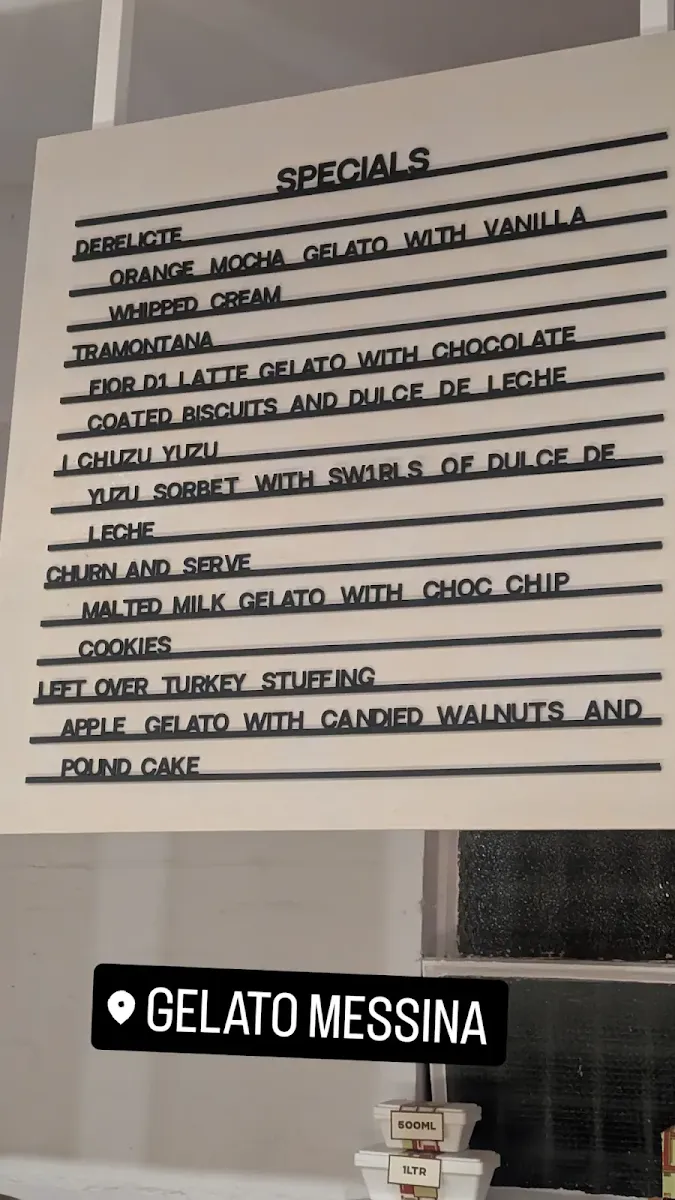 SPECIALS
DERELICTE
ORANGE MOCHA GELATO WITH VANILLA
WHIPPED CREAM
TRAMONTANA
FIOR D1 LATTE GELATO WITH CHOCOLATE
COATED BISCUITS AND DULCE DE LECHE
I CHUZU YUZU
YUZU SORBET WITH SW1RLS OF DULCE DE
LECHE
CHURN AND SERVE
MALTED MILK GELATO WITH CHOC CHIP
COOKIES
LEFT OVER TURKEY STUFFING
APPLE GELATO WITH CANDIED WALNUTS AND
POUND CAKE
GELATO MESSINA
500ML
1LTR